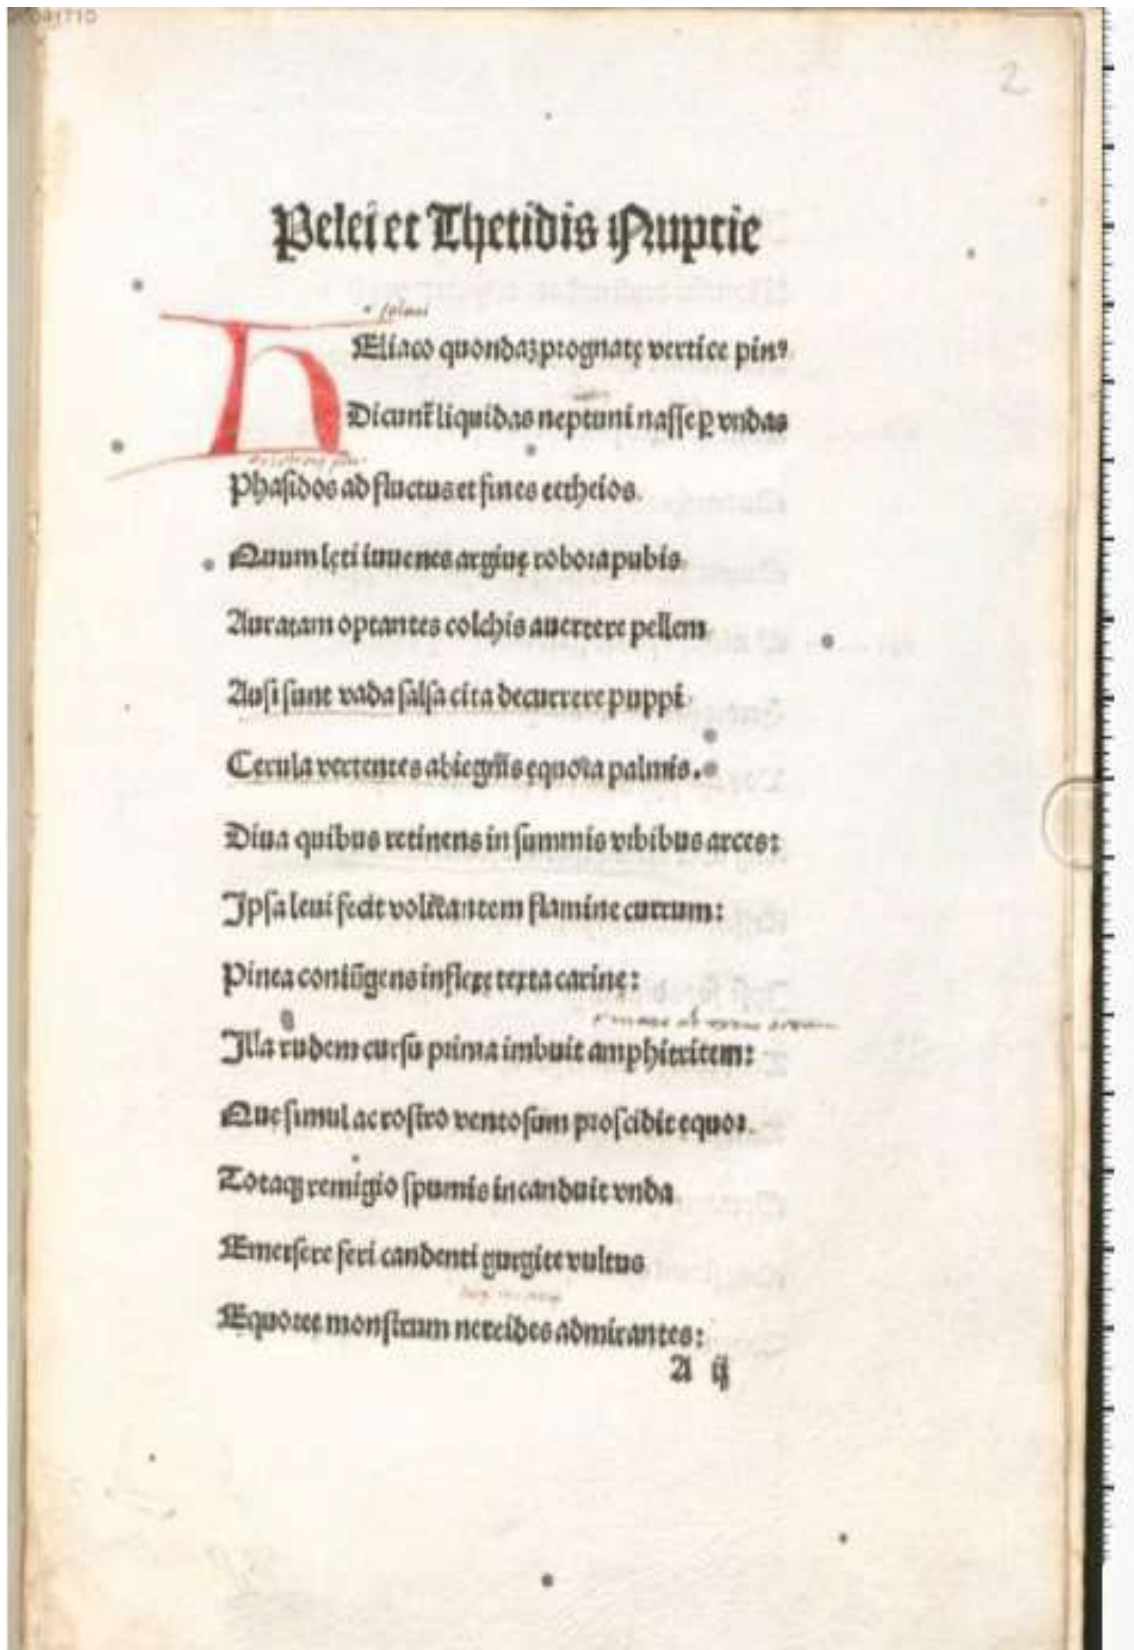 2
Pelei et Thetidis Nuptie
HEliaco quondaꝫ prognatę vertice pinꝰ
Dicunt̃ liquidas neptuni nasse ꝑ vndas
Phasidos ad fluctus et fines ectheios.
Quum lęti iuuenes argiuę robora pubis
Auratam optantes colchis auertere pellem
Ausi sunt vada salsa cita decurrere puppi
Cerula vertentes abiegnis ęquora palmis.
Diua quibus retinens in summis vrbibus arces:
Ipsa leui fecit volitantem flamine currum:
Pinea coniũgens inflexę texta carinę:
Illa rudem cursu prima imbuit amphitritem:
Quę simul ac rostro ventosum proscidit equor.
Totaqꝫ remigio spumis incanduit vnda
Emersere feri candenti gurgite vultus
Equoreę monstrum nereides admirantes:
A ij